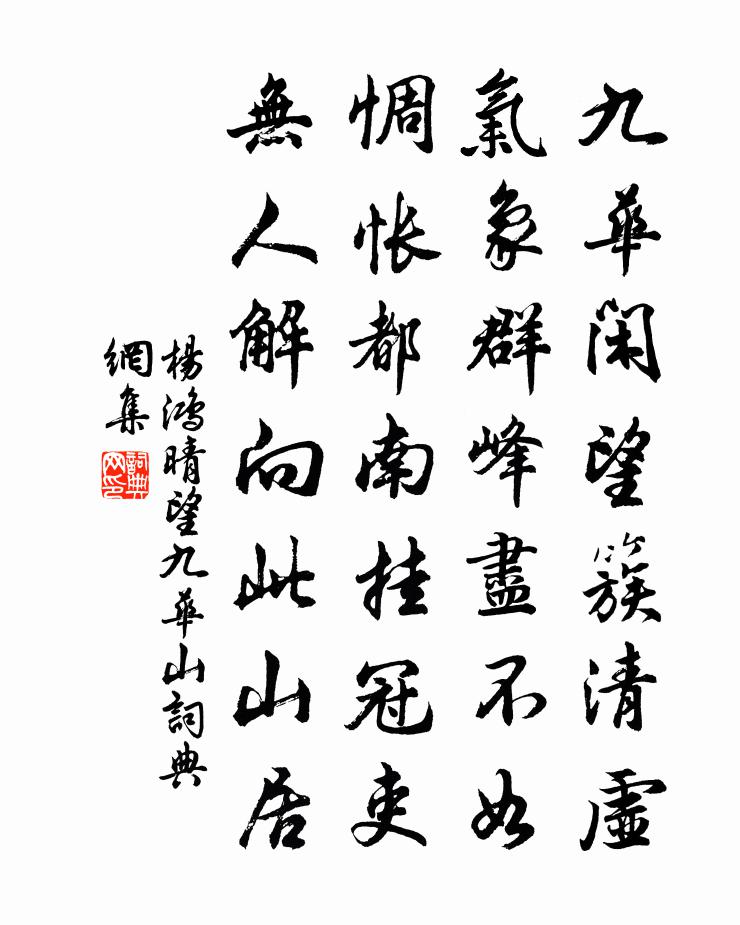 九華閑望簇清虛
氣象群峰盡不如
惆悵都南挂冠吏
無人解向此山居
楊鴻晴望九華山詞典
網集
詞典
网印